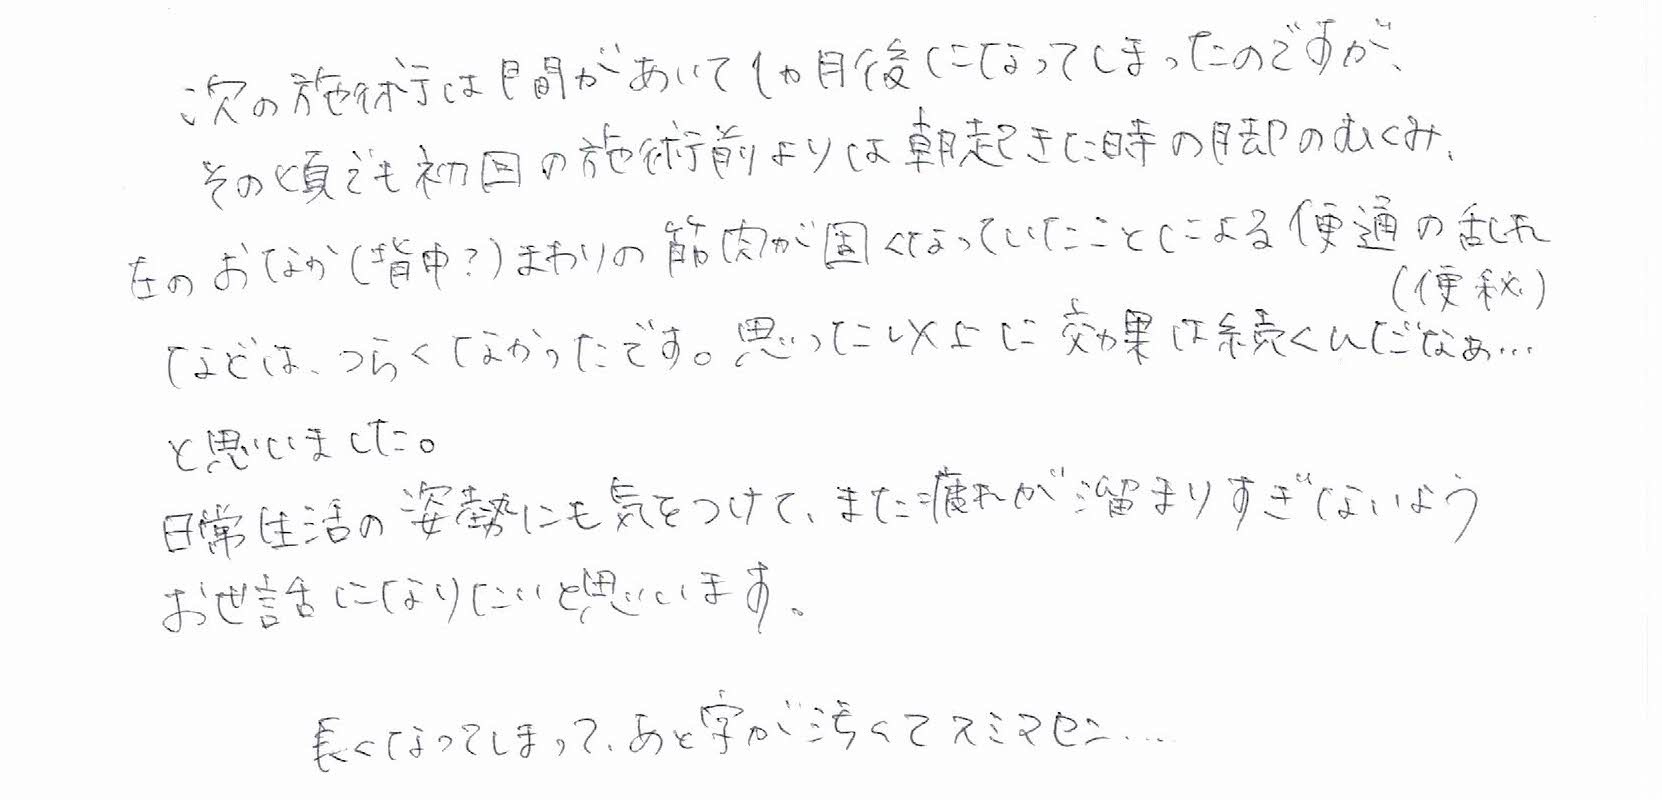 次の施術は間があいて1ヵ月後になってしまったのですが、
その頃でも初回の施術前よりは朝起きた時の脚のむくみ、
左のおなか(背中?)まわりの筋肉が固くなっていたことによる便通の乱れ
(便秘)
などは、つらくなかったです。思った以上に効果は続くんだなぁ…
と思いました。
日常生活の姿勢にも気をつけて、また疲れが溜まりすぎないよう
お世話になりたいと思います。
長くなってしまって、あと字が汚くてスミマセン…